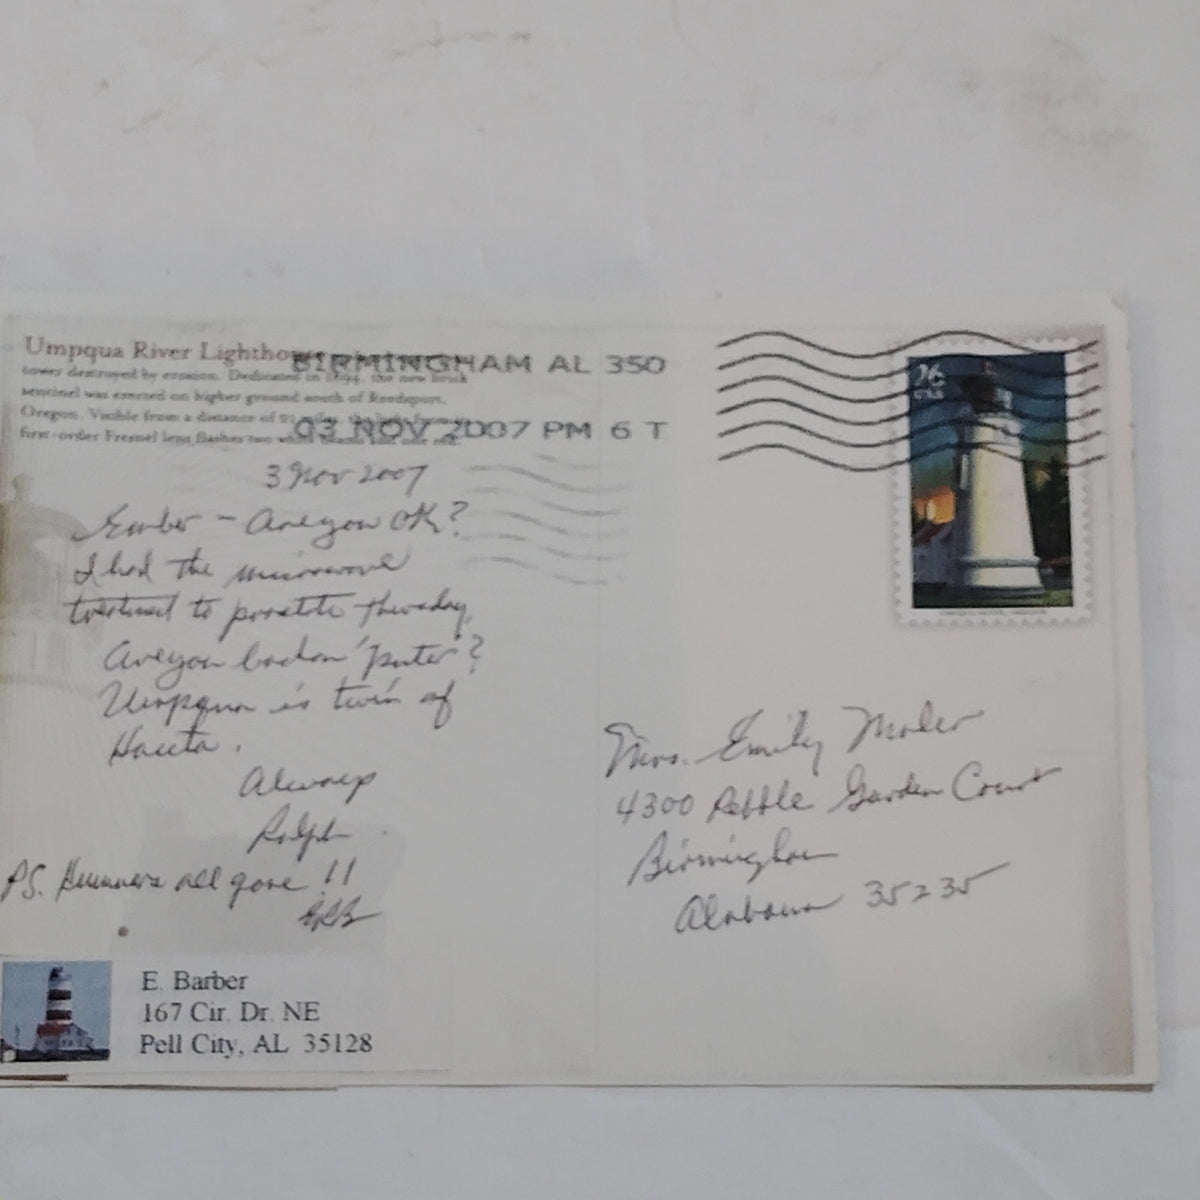 Umpqua River Lighthouse
tower destroyed by erosion. Dedicated in 1894, the new brick
sentinel was erected on higher ground south of Reedsport,
Oregon. Visible from a distance of
first-order Fresnel lens flashes two
BIRMINGHAM AL 350
03 NOV 2007 PM 6 T
26
USA
3 Nov 2007
Ember - Are you OK?
I had the microwave
to prostate Thursday.
Are you back on 'puter'?
Umpqua is twin of
Haceta.
Always
Ralph
PS. Hummers all gone !!
ERB
Mrs. Emily Moler
4300 Pebble Garden Court
Birmingham
Alabama 35235
E. Barber
167 Cir. Dr. NE
Pell City, AL 35128